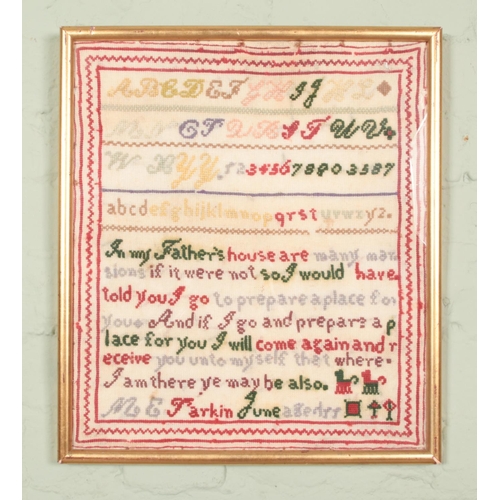 ABCDEFGHIJKL
MNOPQRSTUV
WXYZ. 1234567890 3587
abcdefghijklmnopqrst uvwxyz.
In my Father's house are many man
sions if it were not so I would have
told you I go to prepare a place for
you And if I go and prepare a p
lace for you I will come again and r
eceive you unto myself that where
I am there ye may be also.
M E Parkin June aged